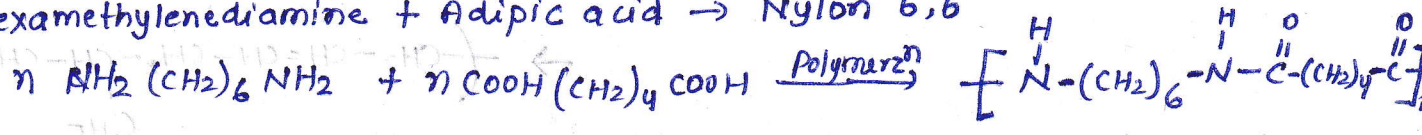 examethylenediamine + Adipic acid → Nylon 6,6
n NH2 (CH2)6 NH2 + n COOH (CH2)4 COOH Polymerzn → [ H N-(CH2)6 -N H -C O -(CH2)4 -C O ]